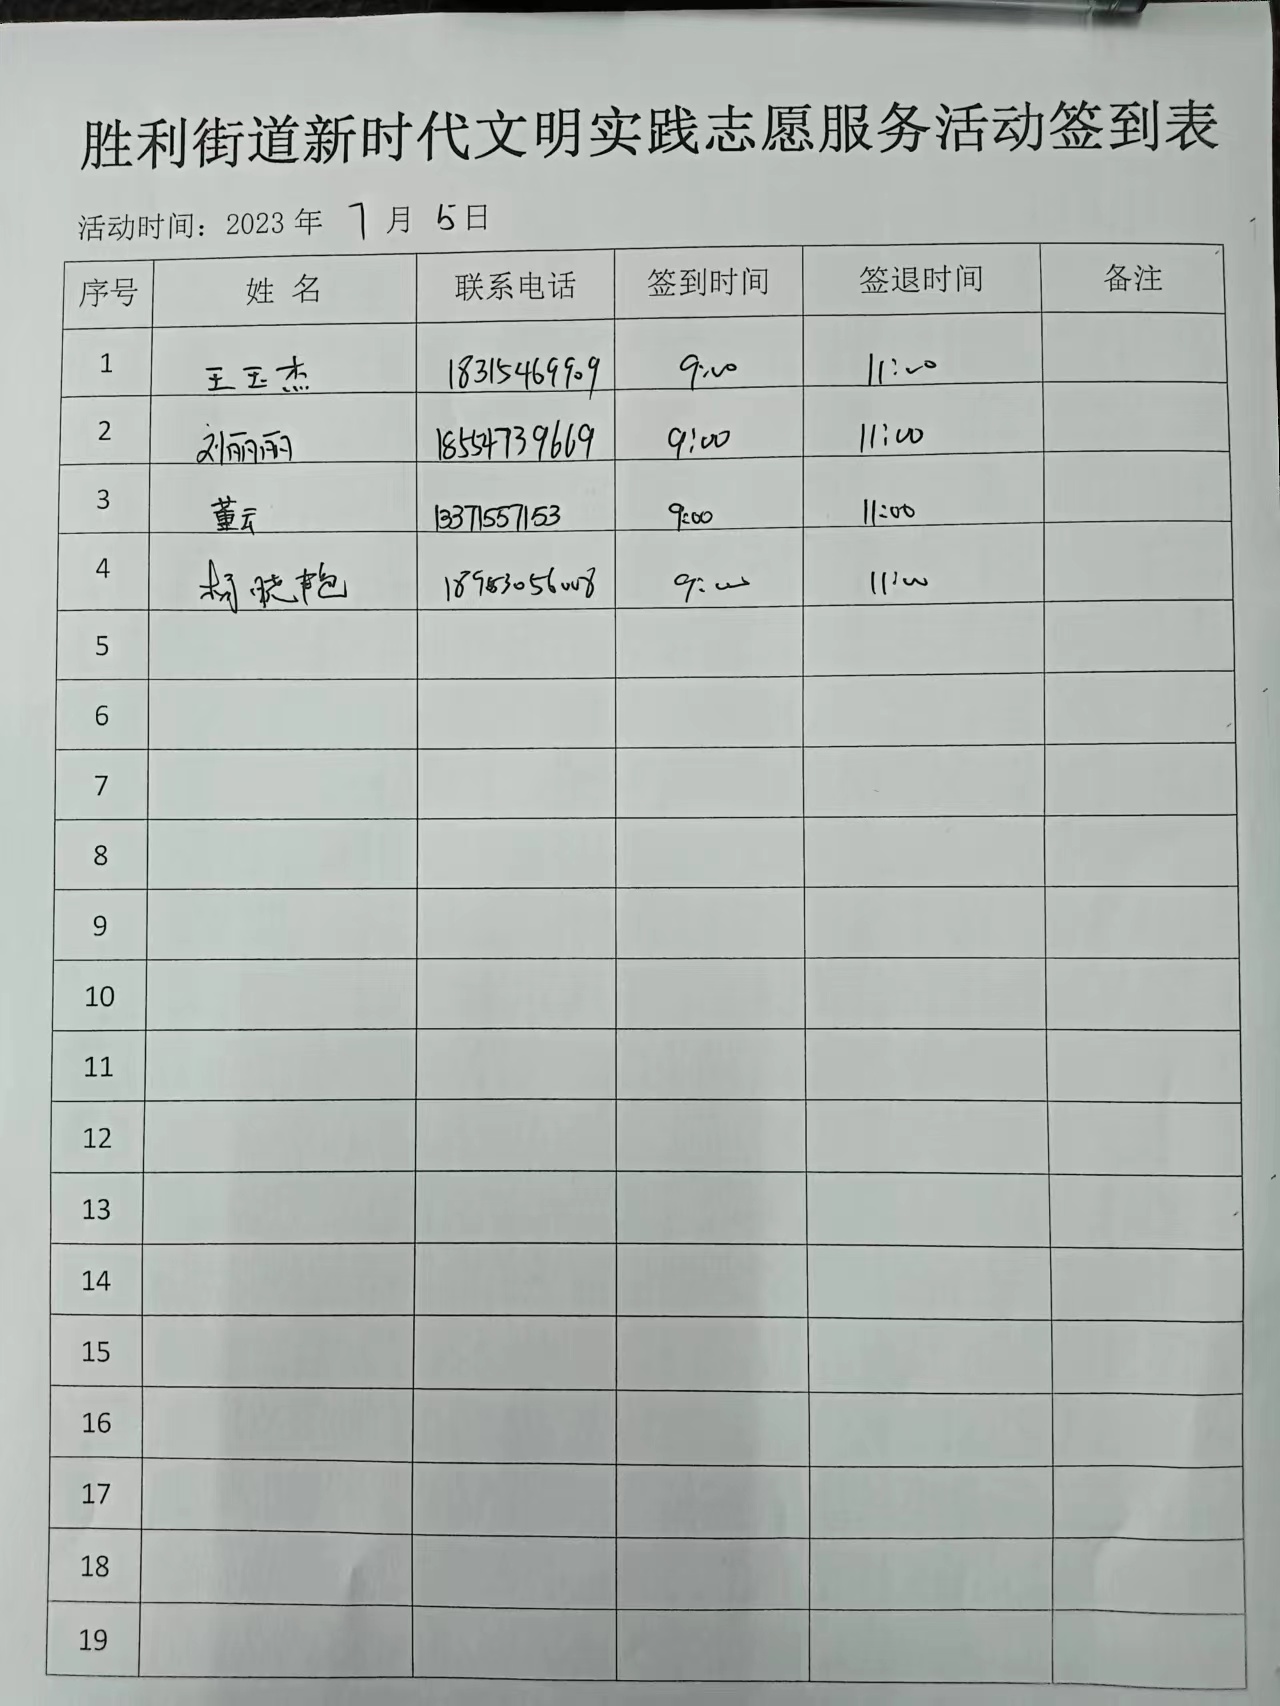 胜利街道新时代文明实践志愿服务活动签到表
活动时间：2023 年 7 月 5 日
序号 姓 名 联系电话 签到时间 签退时间 备注
1 王玉杰 18315469909 9:00 11:00
2 刘丽丽 18554739669 9:00 11:00
3 董云 13371557153 9:00 11:00
4 杨晓艳 9:00 11:00
5
6
7
8
9
10
11
12
13
14
15
16
17
18
19